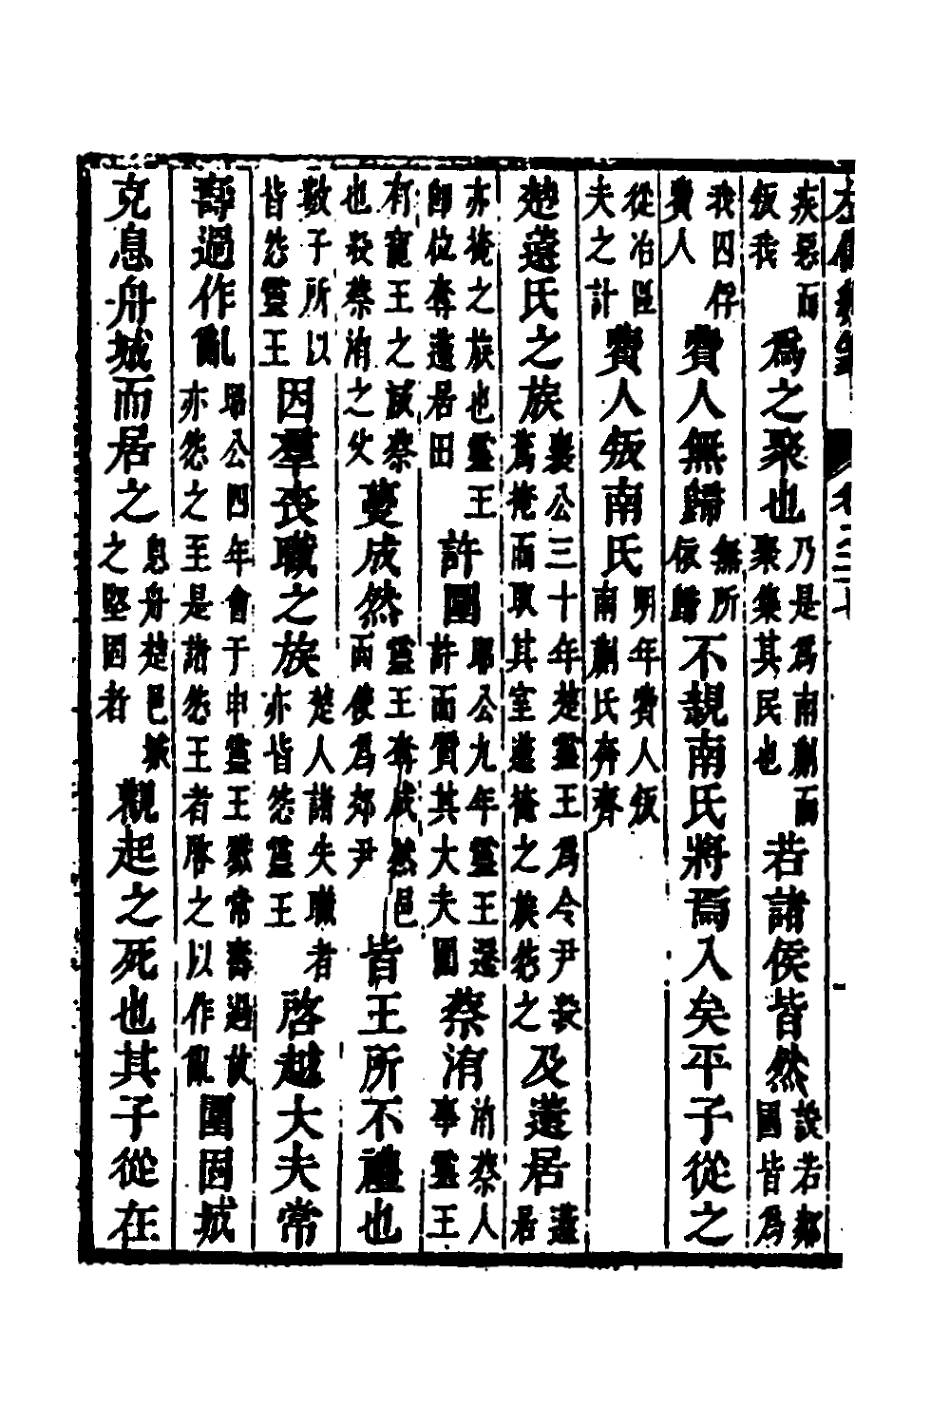 疾惡而叛我爲之聚也乃是爲南蒯而聚集其民也若諸侯皆然設若鄰國皆爲
我四俘費人費人無歸無所依歸不親南氏將焉入矣平子從之
從冶區夫之計費人叛南氏明年費人叛南蒯氏奔齊
楚薳氏之族襄公三十年楚靈王爲令尹殺蔿掩而取其室薳掩之族怨之及薳居薳居
亦掩之族也靈王即位奪薳居田許圍昭公九年靈王遷許而質其大夫圍蔡洧洧蔡人事靈王
有寵王之滅蔡也殺蔡洧之父蔓成然靈王奪成然邑而使爲郊尹皆王所不禮也
數子所以皆怨靈王因羣喪職之族楚人諸失職者亦皆怨靈王啓越大夫常
壽過作亂昭公四年會于申靈王戮常壽過故亦怨之至是諸怨王者啓之以作亂圍固城
克息舟城而居之息舟楚邑城之堅固者觀起之死也其子從在